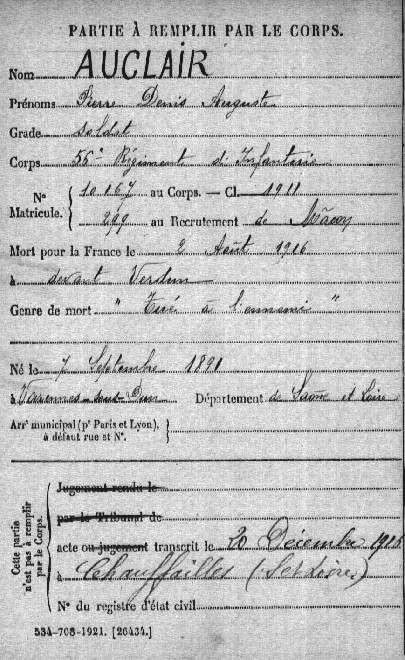 PARTIE À REMPLIR PAR LE CORPS.
Nom AUCLAIR
Prénoms Pierre Denis Auguste
Grade soldat
Corps 56e Régiment d'Infanterie
N° Matricule. { 10.167 au Corps. — Cl. 1911
299 au Recrutement de Mâcon
Mort pour la France le 2 Août 1916
à devant Verdun
Genre de mort " Tué à l'ennemi "
Né le 7 Septembre 1891
à Varennes-sous-Dun Département de Saône et Loire
Arrt municipal (pr Paris et Lyon), à défaut rue et N°. }
Cette partie n'est pas à remplir par le Corps.
Jugement rendu le
par le Tribunal de
acte ou jugement transcrit le 20 Décembre
à Chauffailles
N° du registre d'état civil
534-708-1921. [26434.]